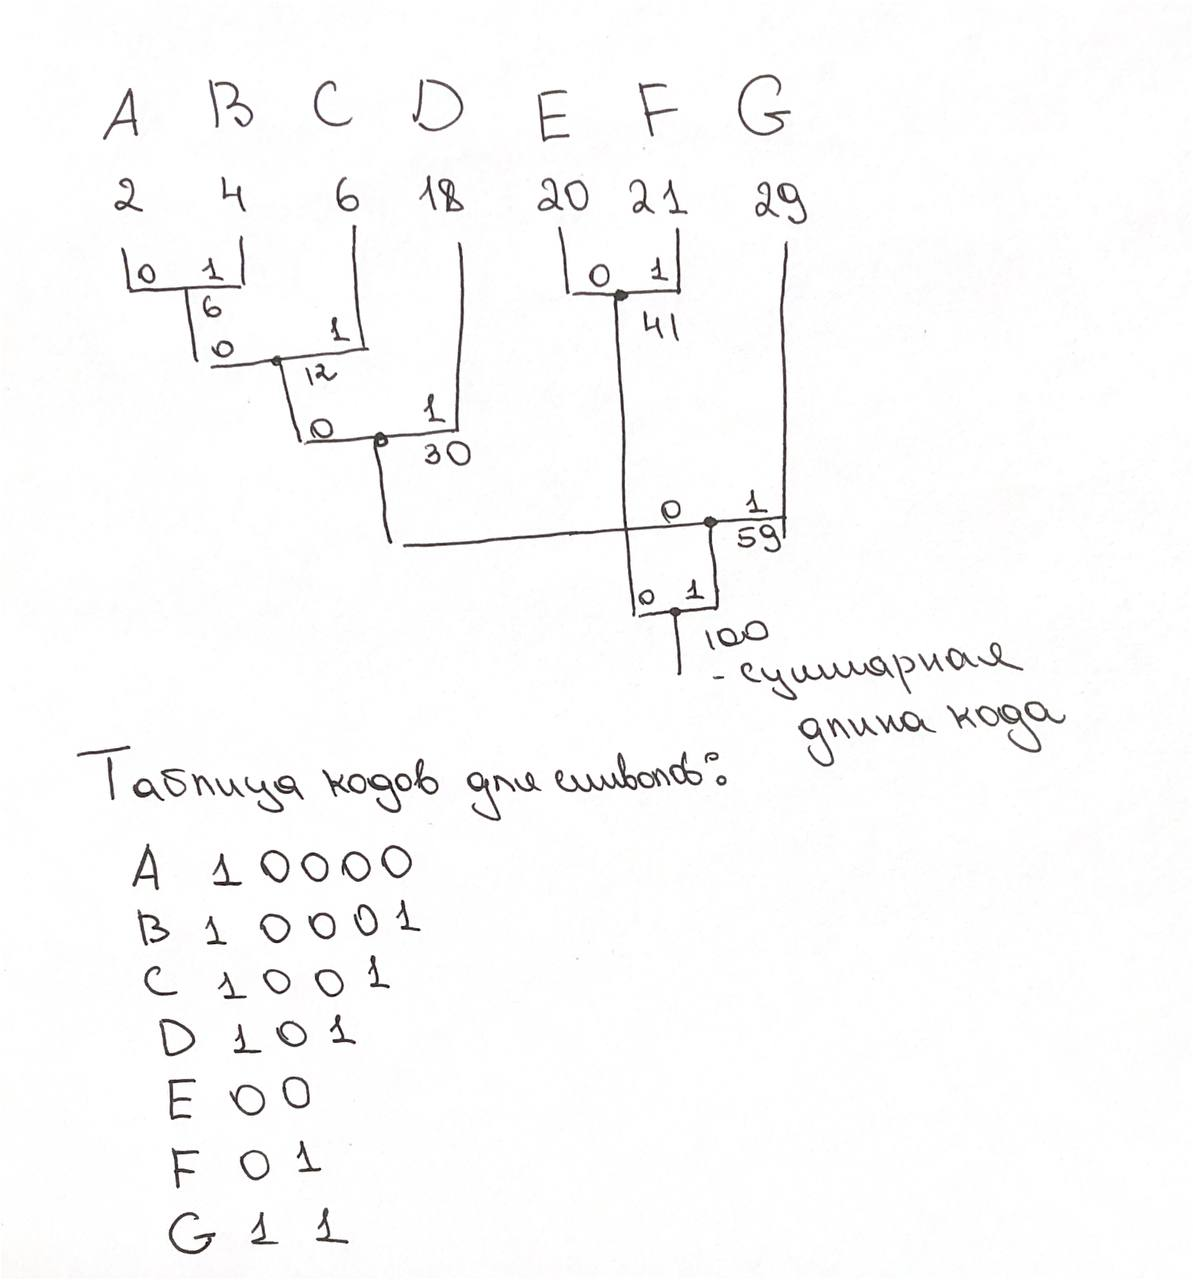 A B C D E F G
2 4 6 18 20 21 29
0 1 0 1
6 41
0 1
12
0 1
30
0 1
59
0 1
100
- суммарная
длина кода
Таблица кодов для символов:
A 1 0 0 0 0
B 1 0 0 0 1
C 1 0 0 1
D 1 0 1
E 0 0
F 0 1
G 1 1